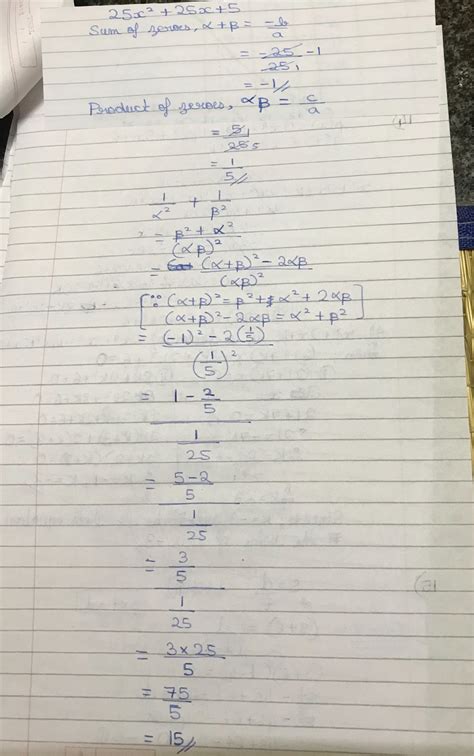 25x² + 25x + 5
Sum of zeroes, α+β = -b/a
= -25/25 -1
= -1//
Product of zeroes, αβ = c/a
= 5/25 5
= 1/5//
1/α² + 1/β²
= β² + α²/(αβ)²
= (α+β)² - 2αβ/(αβ)²
[∵ (α+β)² = β² + α² + 2αβ
(α+β)² - 2αβ = α² + β²]
= (-1)² - 2(1/5)/(1/5)²
= 1 - 2/5 / 1/25
= 5-2/5 / 1/25
= 3/5 / 1/25
= 3×25/5
= 75/5
= 15//